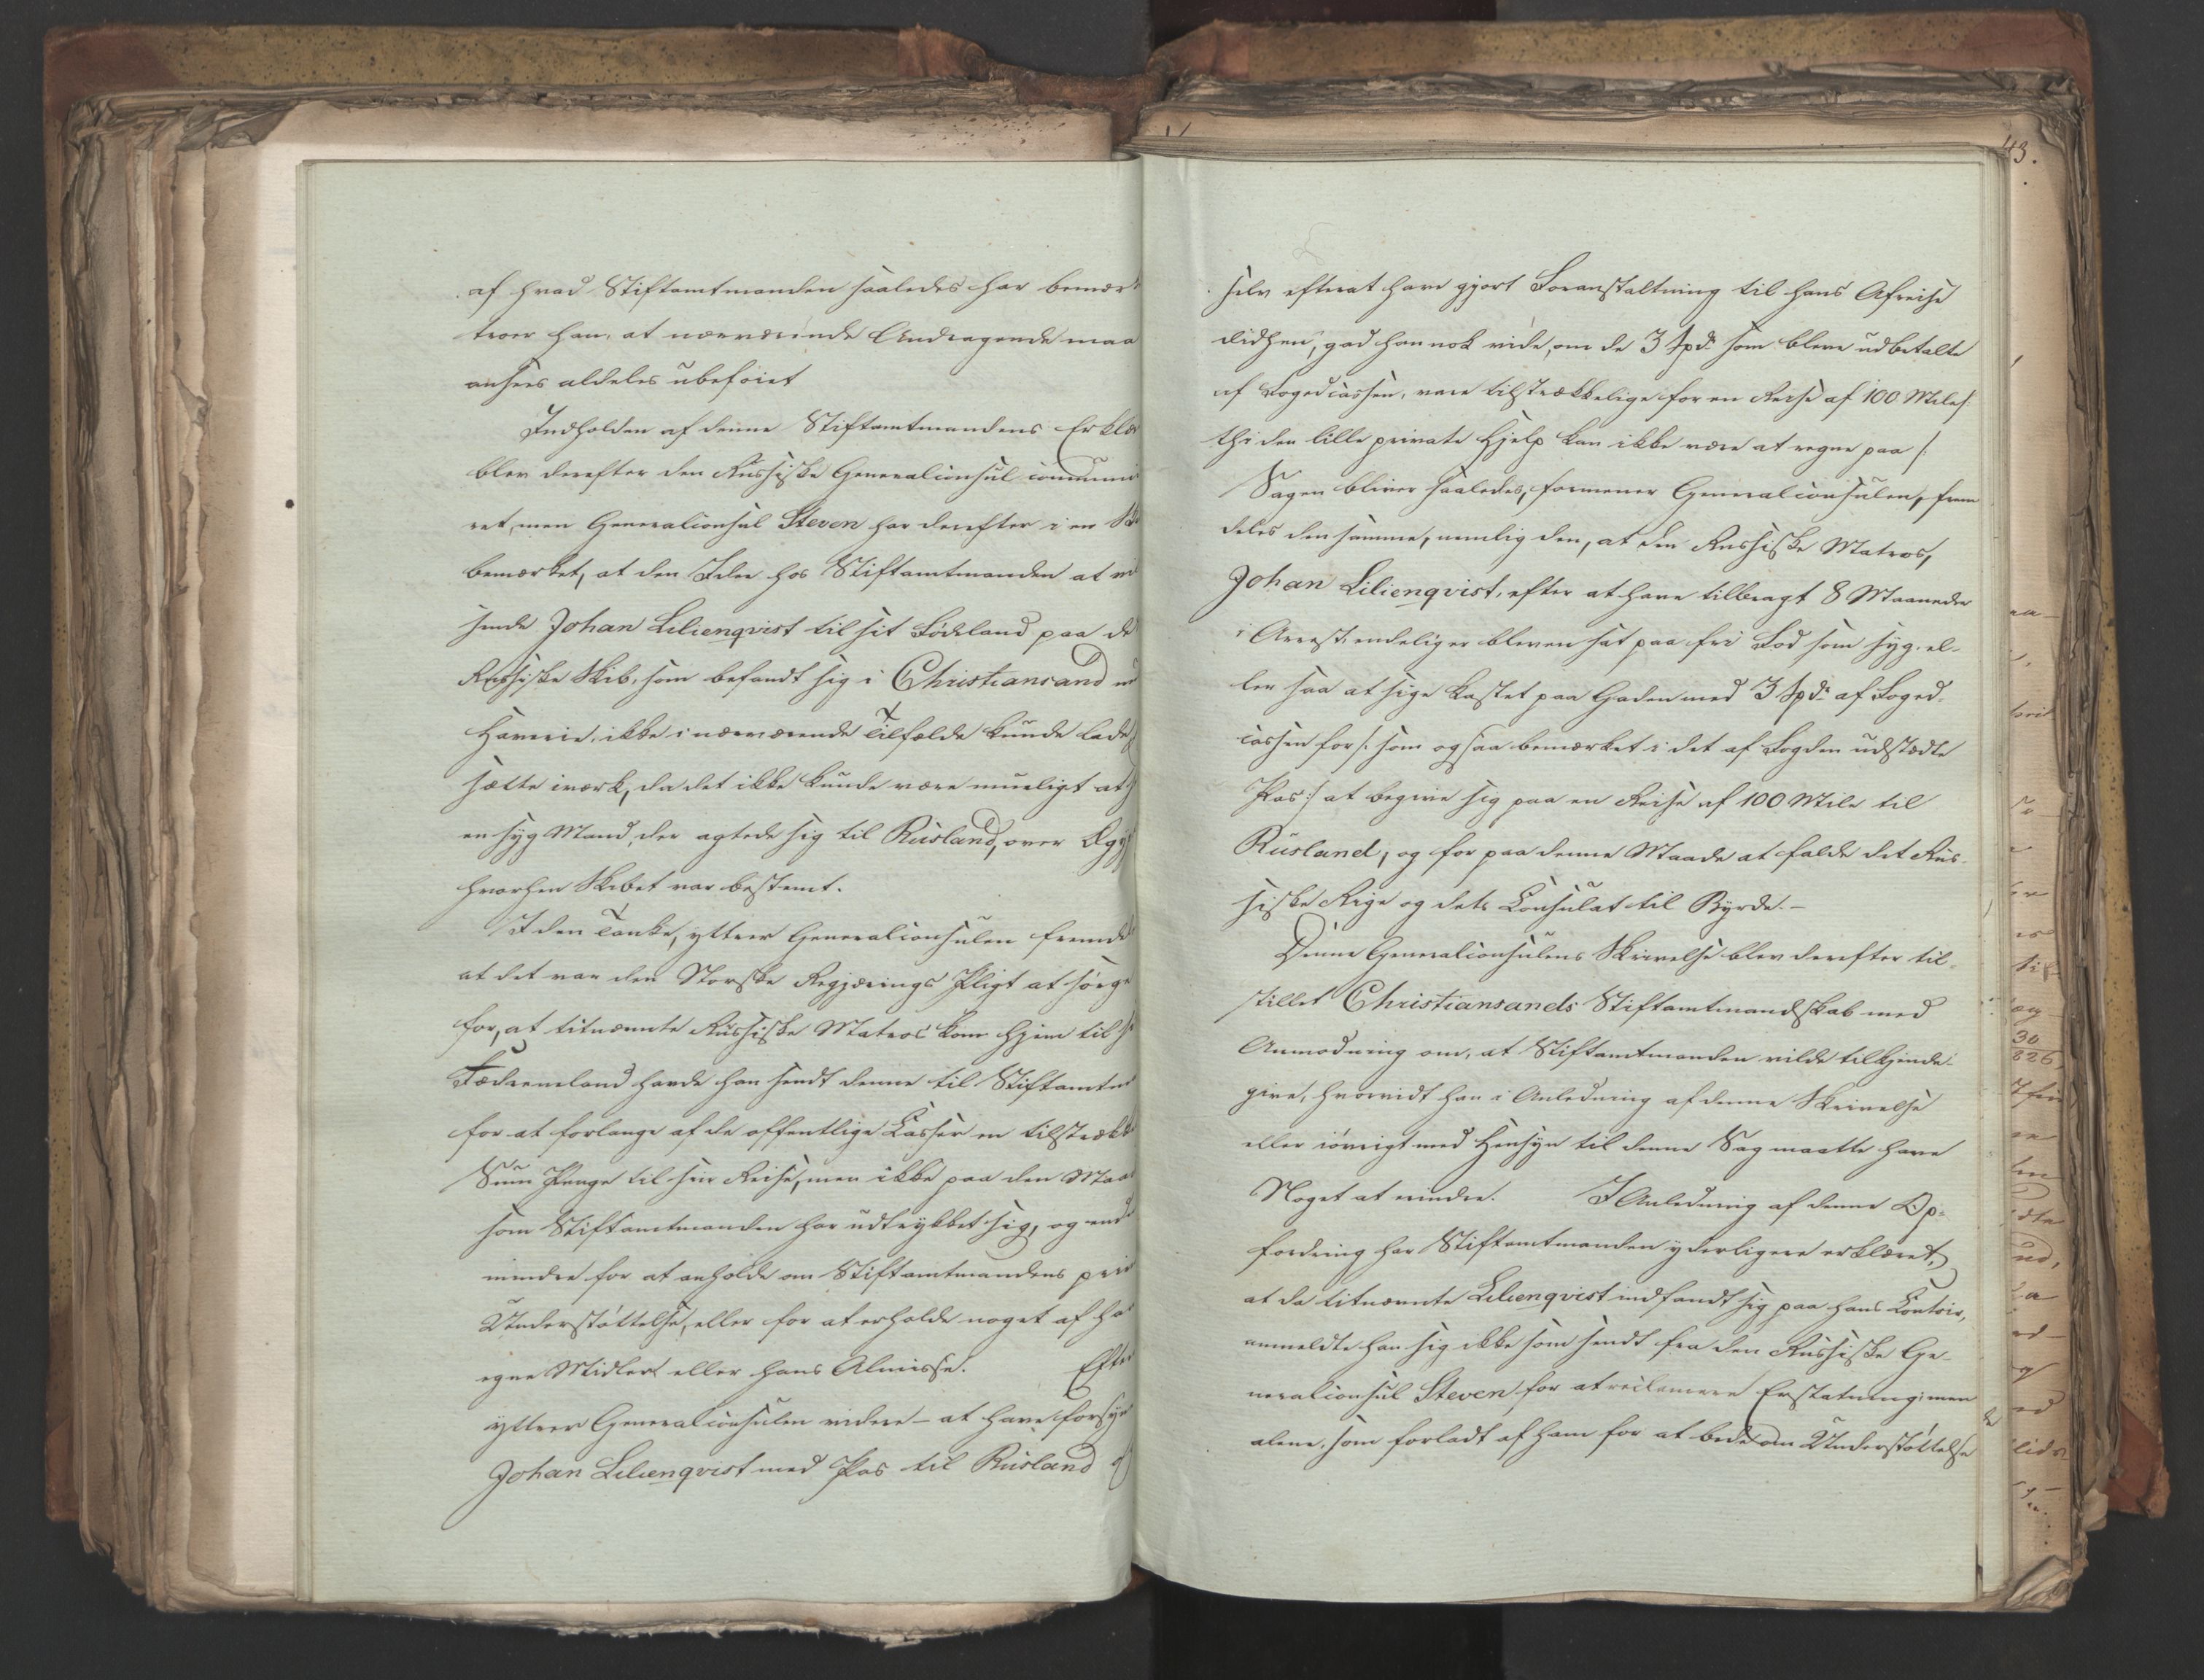 af hvad Stiftamtmanden saaledes har bemærk
troer han, at nærværende Andragende maa
ansees aldeles ubeføiet
Indholden af denne Stiftamtmandens Erklæ
blev derefter den Russiske Generalconsul communi
ret, men Generalconsul Steven har derefter i en
bemærket, at den Idee hos Stiftamtmanden at
sende Johan Lilienqvist til sit Fødeland paa de
Russiske Skib, som befandt sig i Christiansand
Haverie, ikke i nærværende Tilfælde kunde lade
sætte iværk, da det ikke kunde være mueligt at
en syg Mand, der agtede sig til Rusland, over
hvorhen Skibet var bestemt.
I den Tanke, yttrer Generalconsulen fremde
at det var den Norske Regjærings Pligt at sørge
for, at bitnævnte Russiske Matros kom hjem til
Fædreneland havde han sendt denne til Stiftamtm
for at forlange af de offentlige Casser en tilstrække
Sum Penge til sin Reise, men ikke paa den Maa
som Stiftamtmanden har udtrykket sig, og end
mindre for at anholde om Stiftamtmandens pri
Understøttelse, eller for at erholde noget af ha
egne Midler eller hans Almisse. Efter
yttrer Generalconsulen videre – at have forsyn
Johan Lilienqvist med Pas til Rusland
43.
selv efterat have gjort Foranstaltning til hans Afreise
didhen, gad han nok vide, om de 3 Spd. som bleve udbetalte
af Fogedcassen, vare tilstrækkelige for en Reise af 100 Mile /:
thi den lille private Hjelp kan ikke være at regne paa :/
Sagen bliver saaledes, formener Generalconsulen, frem
deles den samme, nemlig den, at den Russiske Matros,
Johan Lilienqvist, efter at have tilbragt 8 Maaneder
i Arrest, endelig er bleven sat paa fri Fod som syg, el-
ler saa at sige kastet paa Gaden med 3 Spd. af Foged-
cassen for /: som ogsaa bemærket i det af Fogden udstædte
Pas :/ at begive sig paa en Reise af 100 Mile til
Rusland, og for paa denne Maade at falde det Rus-
siske Rige og dets Consulat til Byrde. –
Denne Generalconsulens Skrivelse blev derefter til-
stillet Christiansands Stiftamtmandskab med
Anmodning om, at Stiftamtmanden vilde tilkjende-
give, hvorvidt han i Anledning af denne Skrivelse
eller iøvrigt med Hensyn til denne Sag maatte have
Noget at erindre. I Anledning af denne Op-
fordring har Stiftamtmanden yderligere erklæret,
at da bitnævnte Lilienqvist indfandt sig paa hans Contoir,
anmeldte han sig ikke som sendt fra den Russiske Ge-
neralconsul Steven for at reclamere Erstatning; men
alene som forladt af ham for at bede om Understøttelse